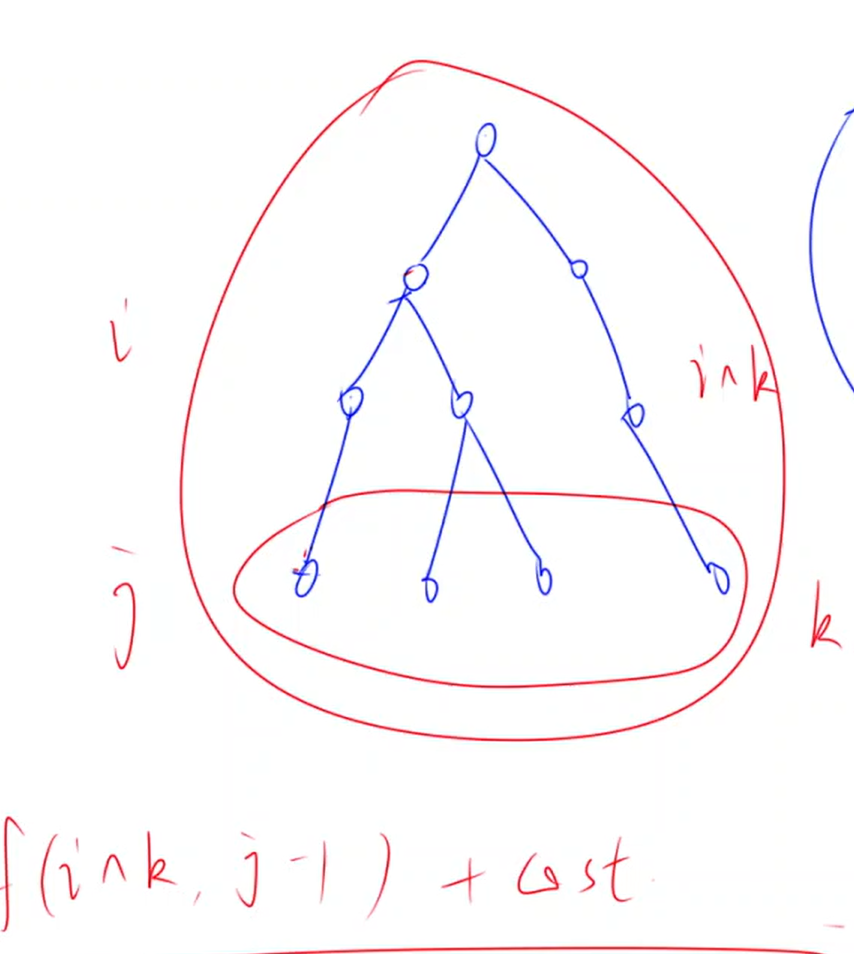 i
i^k
j
k
f(i^k, j-1) + cost